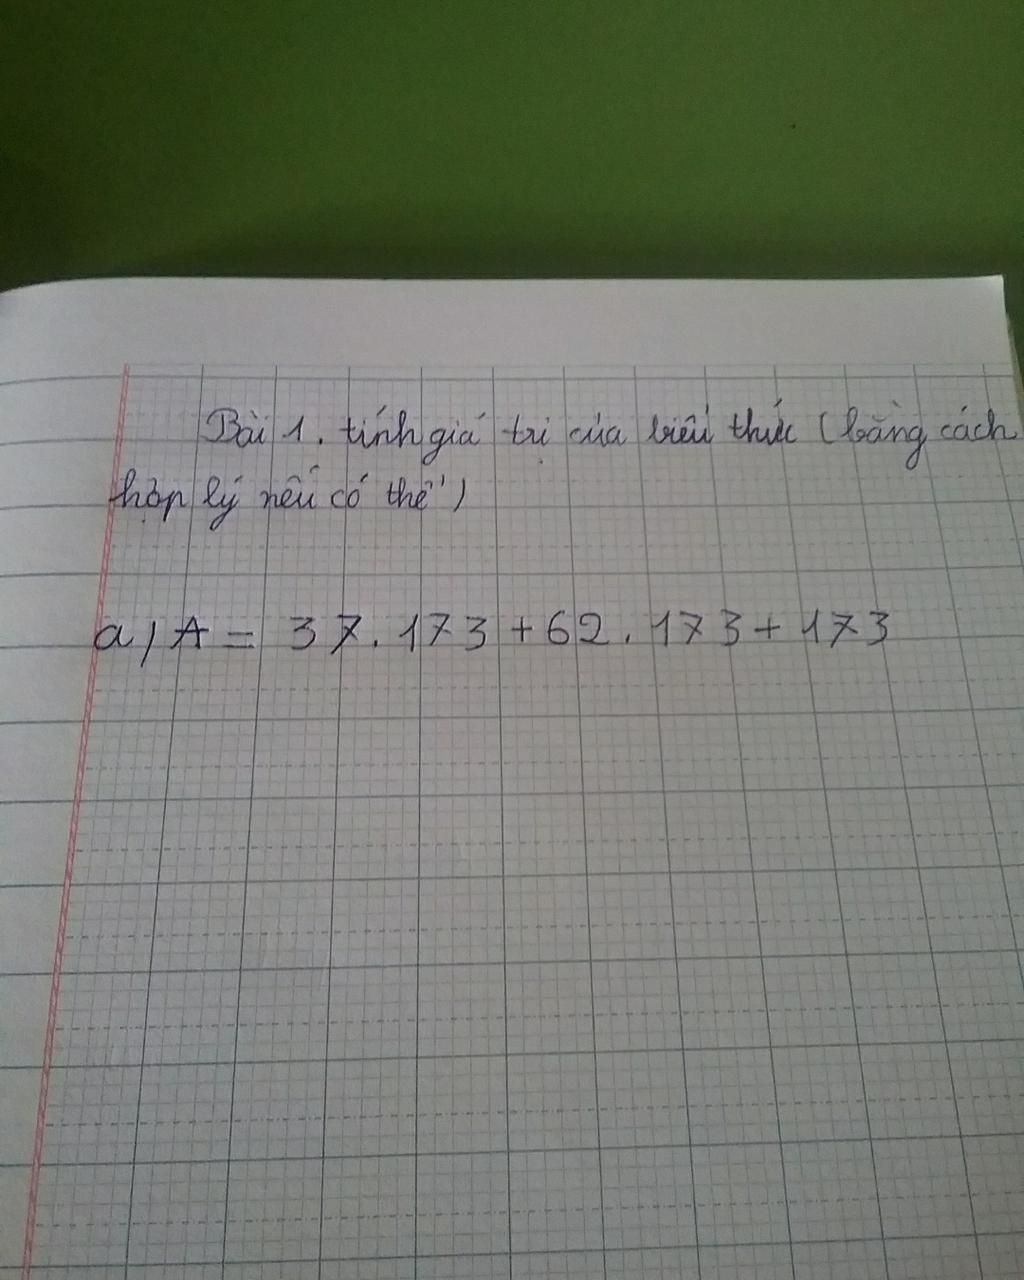 Bài 1. tính giá trị của biểu thức (bằng cách
hợp lý nếu có thể)
a, A = 37.173 + 62.173 + 173